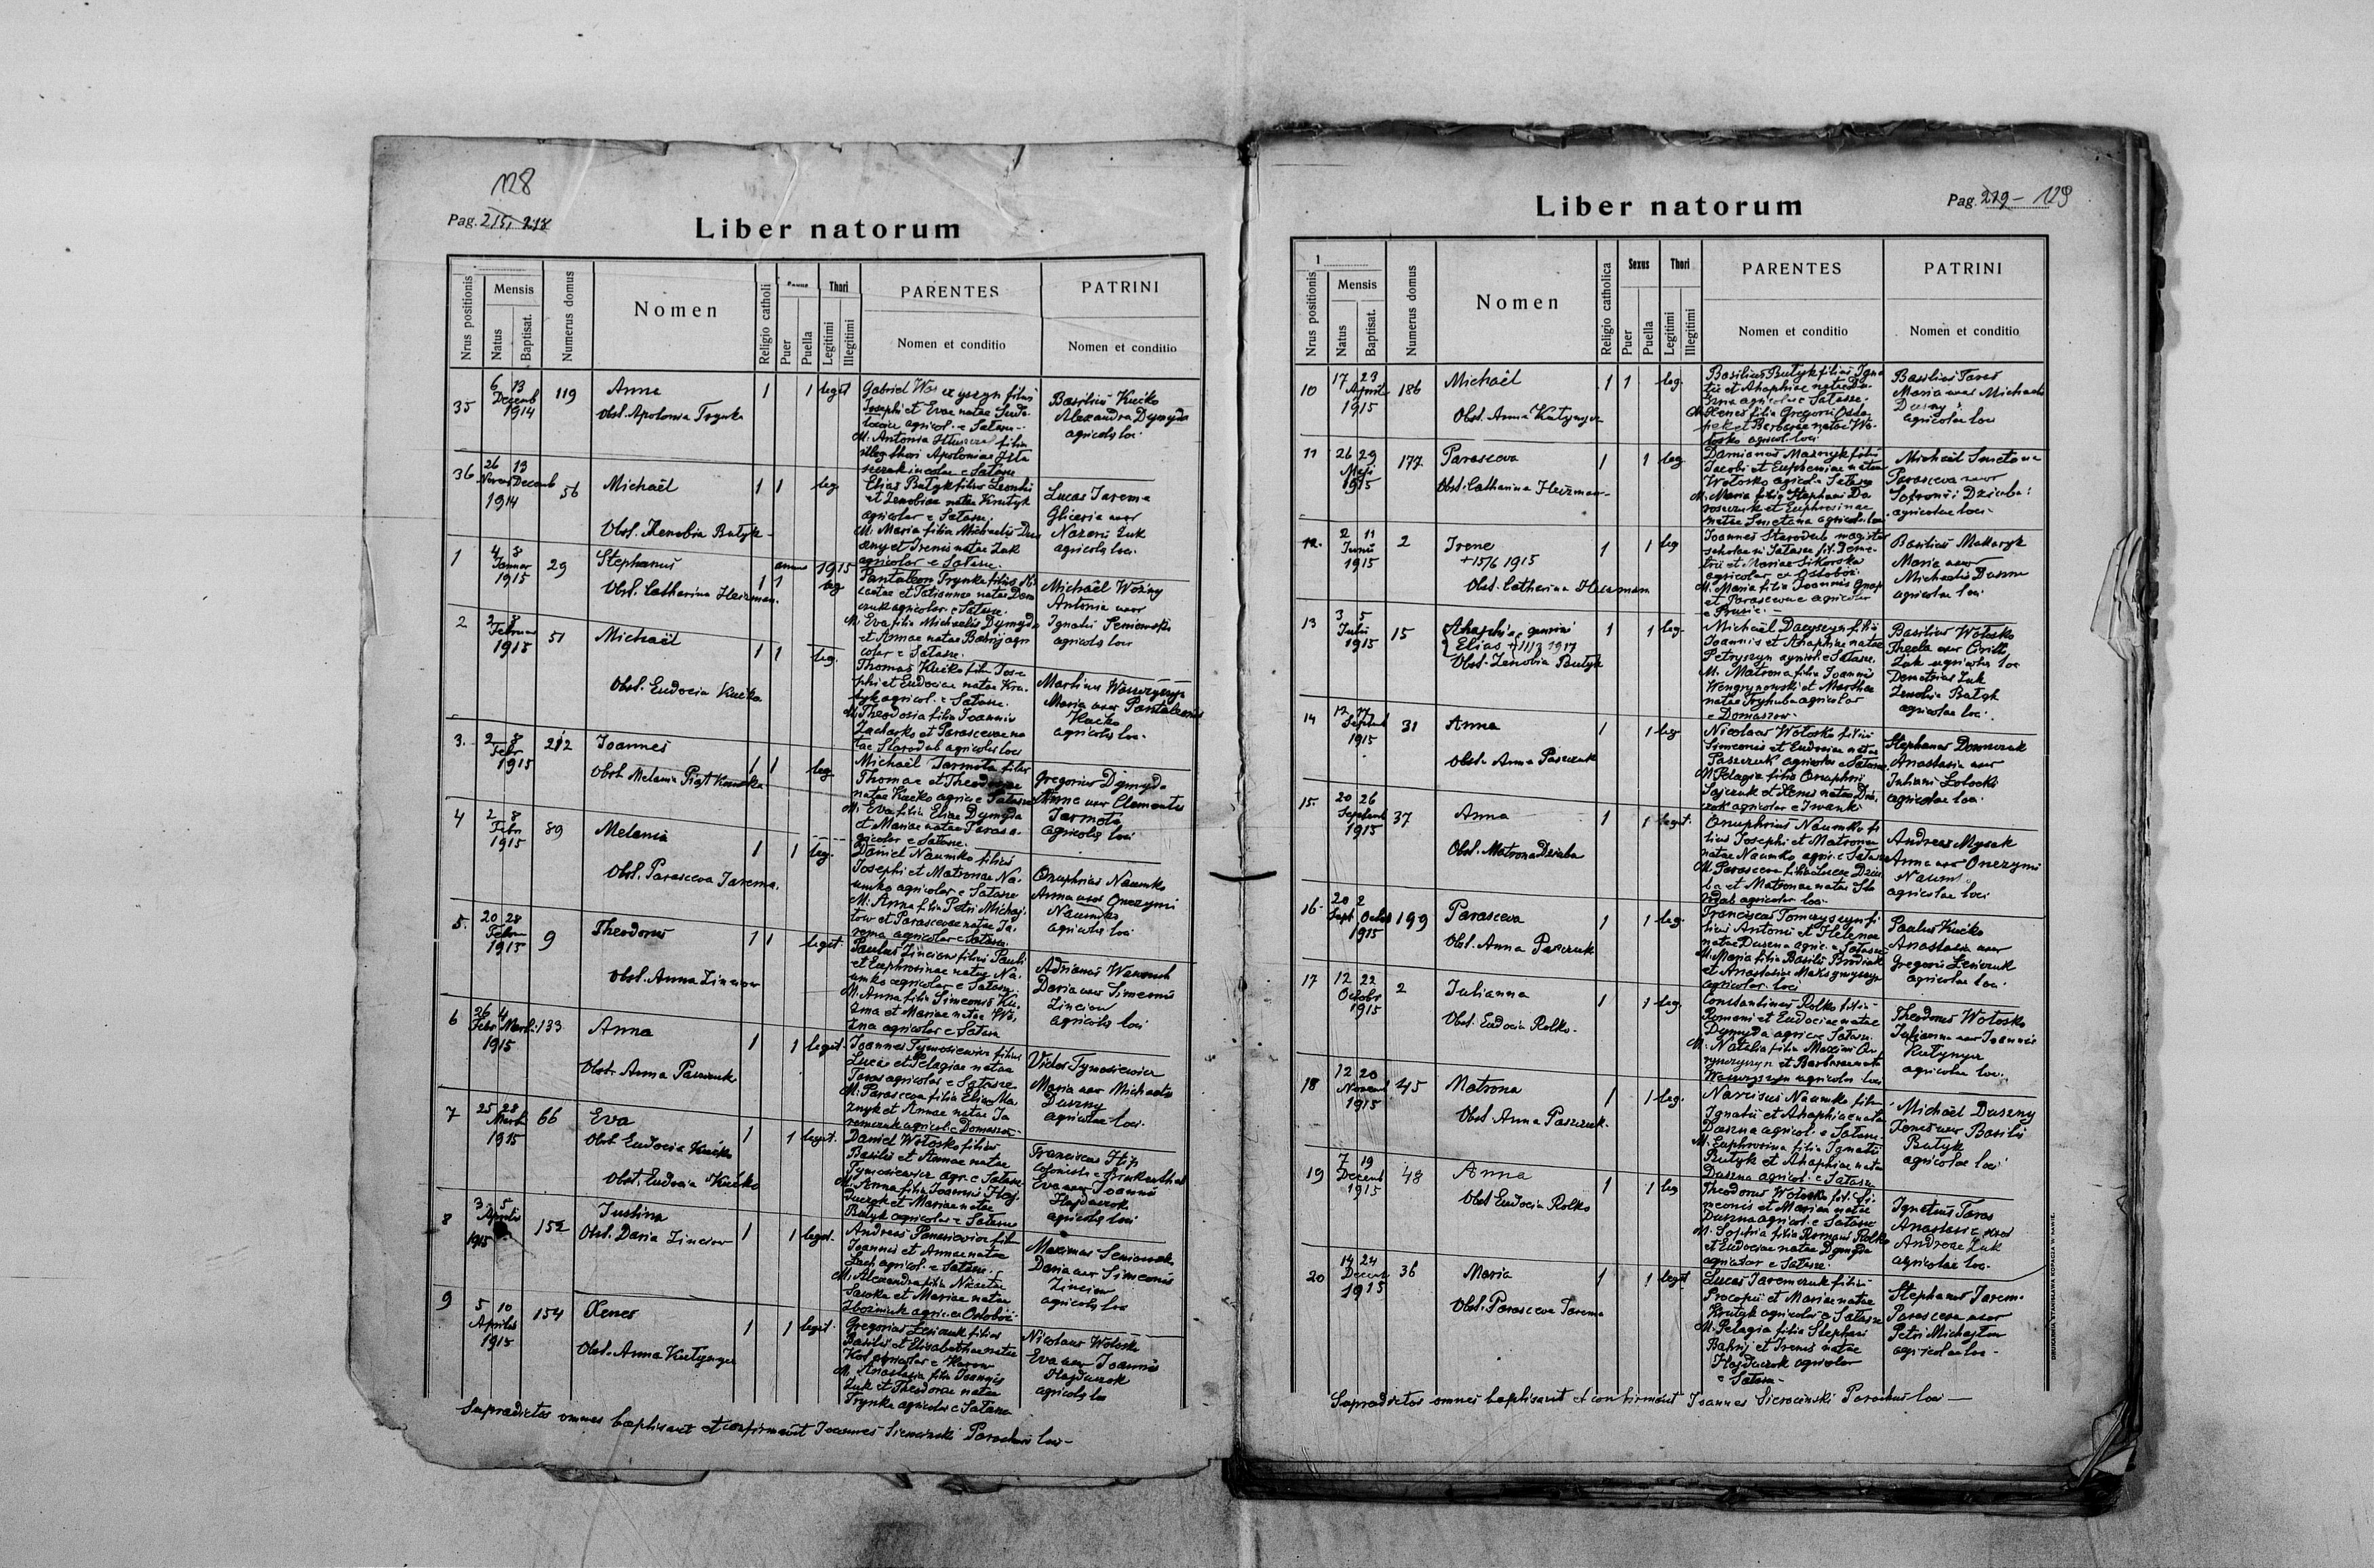 128
Pag. 215, 218
Liber natorum
Nrus positionis
Mensis
Natus
Baptisat.
Numerus domus
Nomen
Religio catholi
Puer
Puella
Thori
Legitimi
Illegitimi
PARENTES
Nomen et conditio
PATRINI
Nomen et conditio
35
6 13
Decemb
1914
119
Anna
Obst. Apolonia Trynka
1
1
legit
Gabriel filius
Josephi et Evae natae
agricol. e Satasze
M. Antonia filia
illeg. thori Apoloniae
incolae e Satasze
Basilius Kućko
Alexandra Dymyda
agricolae loci
36
26 13
Novem Decemb
1914
56
Michaël
Obst. Zenobia Butyk
1 1
leg
Elias Butyk filius Leontii
et Zenobiae natae Krutyk
agricolar e Satasze.
M. Maria filia Michaelis
et Irenis natae Zuk
agricolar e Satasze.
Lucas Jarema
Gliceria uxor
Nazarii Zuk
agricolae loci
annus 1915
1
4 8
Januar
1915
29
Stephanus
Obst. Catharina Heizman.
1 1
leg
Pantaleon Trynka filius
et Tatiannae natae
agricolar. e Satasze.
M. Eva filia Michaelis Dymyda
et Annae natae Bahrij agri
colar e Satasze.
Michaël Woźny
Antonia uxor
Ignatii
agricolae loci
2
2 8
Februar
1915
51
Michaël
Obst. Eudocia Kućko
1 1
leg.
Thomas Kućko filius Jose
phi et Eudociae natae Kru
tyk agricol. e Satasze.
M. Theodosia filia Joannis
Zacharko et Parascevae na
tae Starodub agricolis loci
Martinus Wawrzyszyn
Maria uxor Pantaleonis
Kućko
agricolae loci.
3.
2 8
Febr
1915
212
Joannes
Obst. Melania
1 1
leg
Michaël Jarmola filius
Thomae et Theodorae
natae Kućko agric e Satasze
M. Eva filia Eliae Dymyda
et Mariae natae Taras a-
gricolar e Satasze.
Gregorius Dymyda
Anna uxor Clementis
Jarmola
agricolae loci
4
2 8
Febr
1915
89
Melania
Obst. Parasceva Jarema.
1
1
leg.
Daniel Naumko filius
Josephi et Matronae Na-
umko agricolar e Satasze
M. Anna filia Petri Michaj-
tow et Parascevae natae Ja-
rema agricolar e Satasze.
Onuphrius Naumko
Anna uxor Onezymi
Naumko
agricolae loci
5.
20 28
Febru
1915
9
Theodorus
Obst. Anna Zinciow
1 1
legit.
Paulus Zinciow filius Pauli
et Euphrosinae natae Na-
umko agricolar e Satasze.
M. Anna filia Simeonis Ku-
zma et Mariae natae Wo-
zna agricolar e Satasze
Adrianus
Daria uxor Simeonis
Zinciow
agricolae loci
6
26 4
Febr Mart.
1915
133
Anna
Obst. Anna Paszczuk
1
1
legit.
Joannes Tymosiewicz filius
Lucae et Pelagiae natae
Taras agricolar e Satasze
M. Parasceva filia Eliae Ma-
znyk et Annae natae Ja
remczuk agricol. e Domaszow.
Victor Tymosiewicz
Maria uxor Michaelis
Duszny
agricolae loci.
7
25 28
Mart.
1915
66
Eva
Obst Eudocia Kućko
Obst. Eudocia Kućko
1
1
legit.
Daniel Wołosko filius
Basilii et Annae natae
Tymosiewicz agr. e Satasze
M. Anna filia Joannis Haj-
duczok et Mariae natae
Butyk agricolar e Satasze
Franciscus
colonista e
Eva uxor Joannis
Hajduczok
agricolae loci
8
3 5
Aprilis
1915
152
Justina
Obst. Daria Zinciow
1
1
legit.
Andreas filius
Joannis et Annae natae
agricol. e Satasze.
M. Alexandra filia Nicetae
et Mariae natae
agric. ex Ostoboż
Maximus
Daria uxor Simeonis
Zinciow
agricolae loci
9
5 10
Aprilis
1915
154
Xenes
Obst. Anna Kutynyez
1
1
legit.
Gregorius Lesiczuk filius
Basilii et Elisabethae natae
Kot agricolar e
M. Anastasia filia Joannis
Zuk et Theodorae natae
Trynka agricolar e Satasze
Nicolaus Wołosko
Eva uxor Joannis
Hajduczok
agricolae loci
Supradictos omnes baptisavit et confirmavit Joannes Sierociński Parochus loci —
Liber natorum
Pag. 219 - 129
Nrus positionis
1
Mensis
Natus
Baptisat.
Numerus domus
Nomen
Religio catholica
Sexus
Puer
Puella
Thori
Legitimi
Illegitimi
PARENTES
Nomen et conditio
PATRINI
Nomen et conditio
10
17 23
April
1915
186
Michaël
Obst. Anna Kutynyez
1 1
leg.
Basilius Butyk filius Igna
tii et Ahaphiae natae Du-
szna agricolae e Satasze.
M. Xenes filia Gregorii Osta-
pek et Barbarae natae Wo-
łosko agricol. loci
Basilius Taras
Maria uxor Michaelis
Duszny
agricolae loci
11
26 29
Maji
1915
177
Parasceva
Obst. Catharina Heizman
1
1
leg
Damianus Maznyk filius
Jacobi et Euphemiae natae
Wołosko agricol. e Satasze
M. Maria filia Stephani Da
roszczuk et Euphrosinae
natae Smetana agricolae loci
Michaël Smetana
Parasceva uxor
Sofronii Dziuba
agricolae loci
12.
2 11
Junii
1915
2
Irene
+ 15/6 1915
Obst. Catharina Heizman
1
1
leg
Joannes Starodub magister
scholae in Satasze fil. Deme-
trii et Mariae Sikorska
agricolar ex Ostoboż.
M. Maria filia Joannis
et Parascevae agricolar
e Prusie. -
Basilius Makaryk
Maria uxor
Michaelis Duszny
agricolae loci
13
3 5
Julii
1915
15
Ahaphia gemini
Elias + 11/3 1917
Obst. Zenobia Butyk
1
1
leg.
Michaël Daczyszyn filius
Joannis et Ahaphiae natae
Petryszyn agricol. e Satasze.
M. Matrona filia Joannis
Wengrynowski et Marthae
natae Tryhuba agricolar
e Domaszow.
Basilius Wołosko
Thecla uxor Cirilli
Zuk agricolae loci
Demetrius Zuk
Zenobia Butyk
agricolae loci.
14
12 17
Septemb
1915
31
Anna
Obst. Anna Paszczuk
1
1
leg
Nicolaus Wołosko filius
Simeonis et Eudociae natae
Paszczuk agricolar e Satasze.
M. Pelagia filia Onuphrii
Sajczuk et Xenis natae
agricolar e Iwanki
Stephanus
Anastasia uxor
Juliani Łotocki
agricolae loci.
15.
20 26
Septemb
1915
37
Anna
Obst. Matrona Dziuba
1
1
legit.
Onuphrius Naumko fi-
lius Josephi et Matronae
natae Naumko agric. e Satasze
M. Parasceva filia Lucae Dziu
ba et Matronae natae Sta
rodub agricolar loci.
Andreas Mysak
Anna uxor Onezymi
Naumko
agricolae loci
16.
20 2
Sept. Octob
1915
199
Parasceva
Obst. Anna Paszczuk
1
1
leg.
Franciscus Tomczyszyn fi-
lius Antonii et Helenae
natae Duszna agric. e Satasze
M. Maria filia Basilii Brodiak
et Anastasiae
agricolar. loci
Paulus Kućko
Anastasia uxor
Gregorii Lesiczuk
agricolae loci.
17
12 22
Octobr
1915
2
Julianna
Obst. Eudocia Rolko.
1
1
leg.
Constantinus Rolko filius
Romani et Eudociae natae
Dymyda agric e Satasze.
M. Natalia filia Maximi
et Barbarae natae
Wawrzyszyn agricolar loci
Theodorus Wołosko
Julianna uxor Joannis
Kutynyez
agricolae loci.
18
12 20
Novemb
1915
45
Matrona
Obst. Anna Paszczuk.
1
1
leg.
Narcisus Naumko filius
Ignatii et Ahaphiae natae
Duszna agricol. e Satasze.
M. Euphrosina filia Ignatii
Butyk et Ahaphiae natae
Duszna agricol. e Satasze
Michaël Duszny
Xenes uxor Basilii
Butyk
agricolae loci
19
7 19
Decemb
1915
48
Anna
Obst Eudocia Rolko
1
1
leg
Theodorus Wołosko fil. Si-
meonis et Mariae natae
Duszna agricol. e Satasze
M. Sophia filia Romani Rolko
et Eudociae natae Dymyda
agricolar e Satasze.
Ignatius Taras
Anastasia uxor
Andreae Zuk
agricolae loci.
20
14 24
Decemb
1915
36
Maria
Obst. Parasceva Jarema
1
1
legit
Lucas Jaremczuk filius
Procopii et Mariae natae
Krutyk agricolar e Satasze
M. Pelagia filia Stephani
Bahrij et Irenis natae
Hajduczok agricolar
e Satasze -
Stephanus Jarem.
Parasceva uxor
Petri Michajtow
agricolae loci -
Supradictos omnes baptisavit et confirmavit Joannes Sierociński Parochus loci —
DRUKARNIA STANISŁAWA KOPACZA W RAWIE.